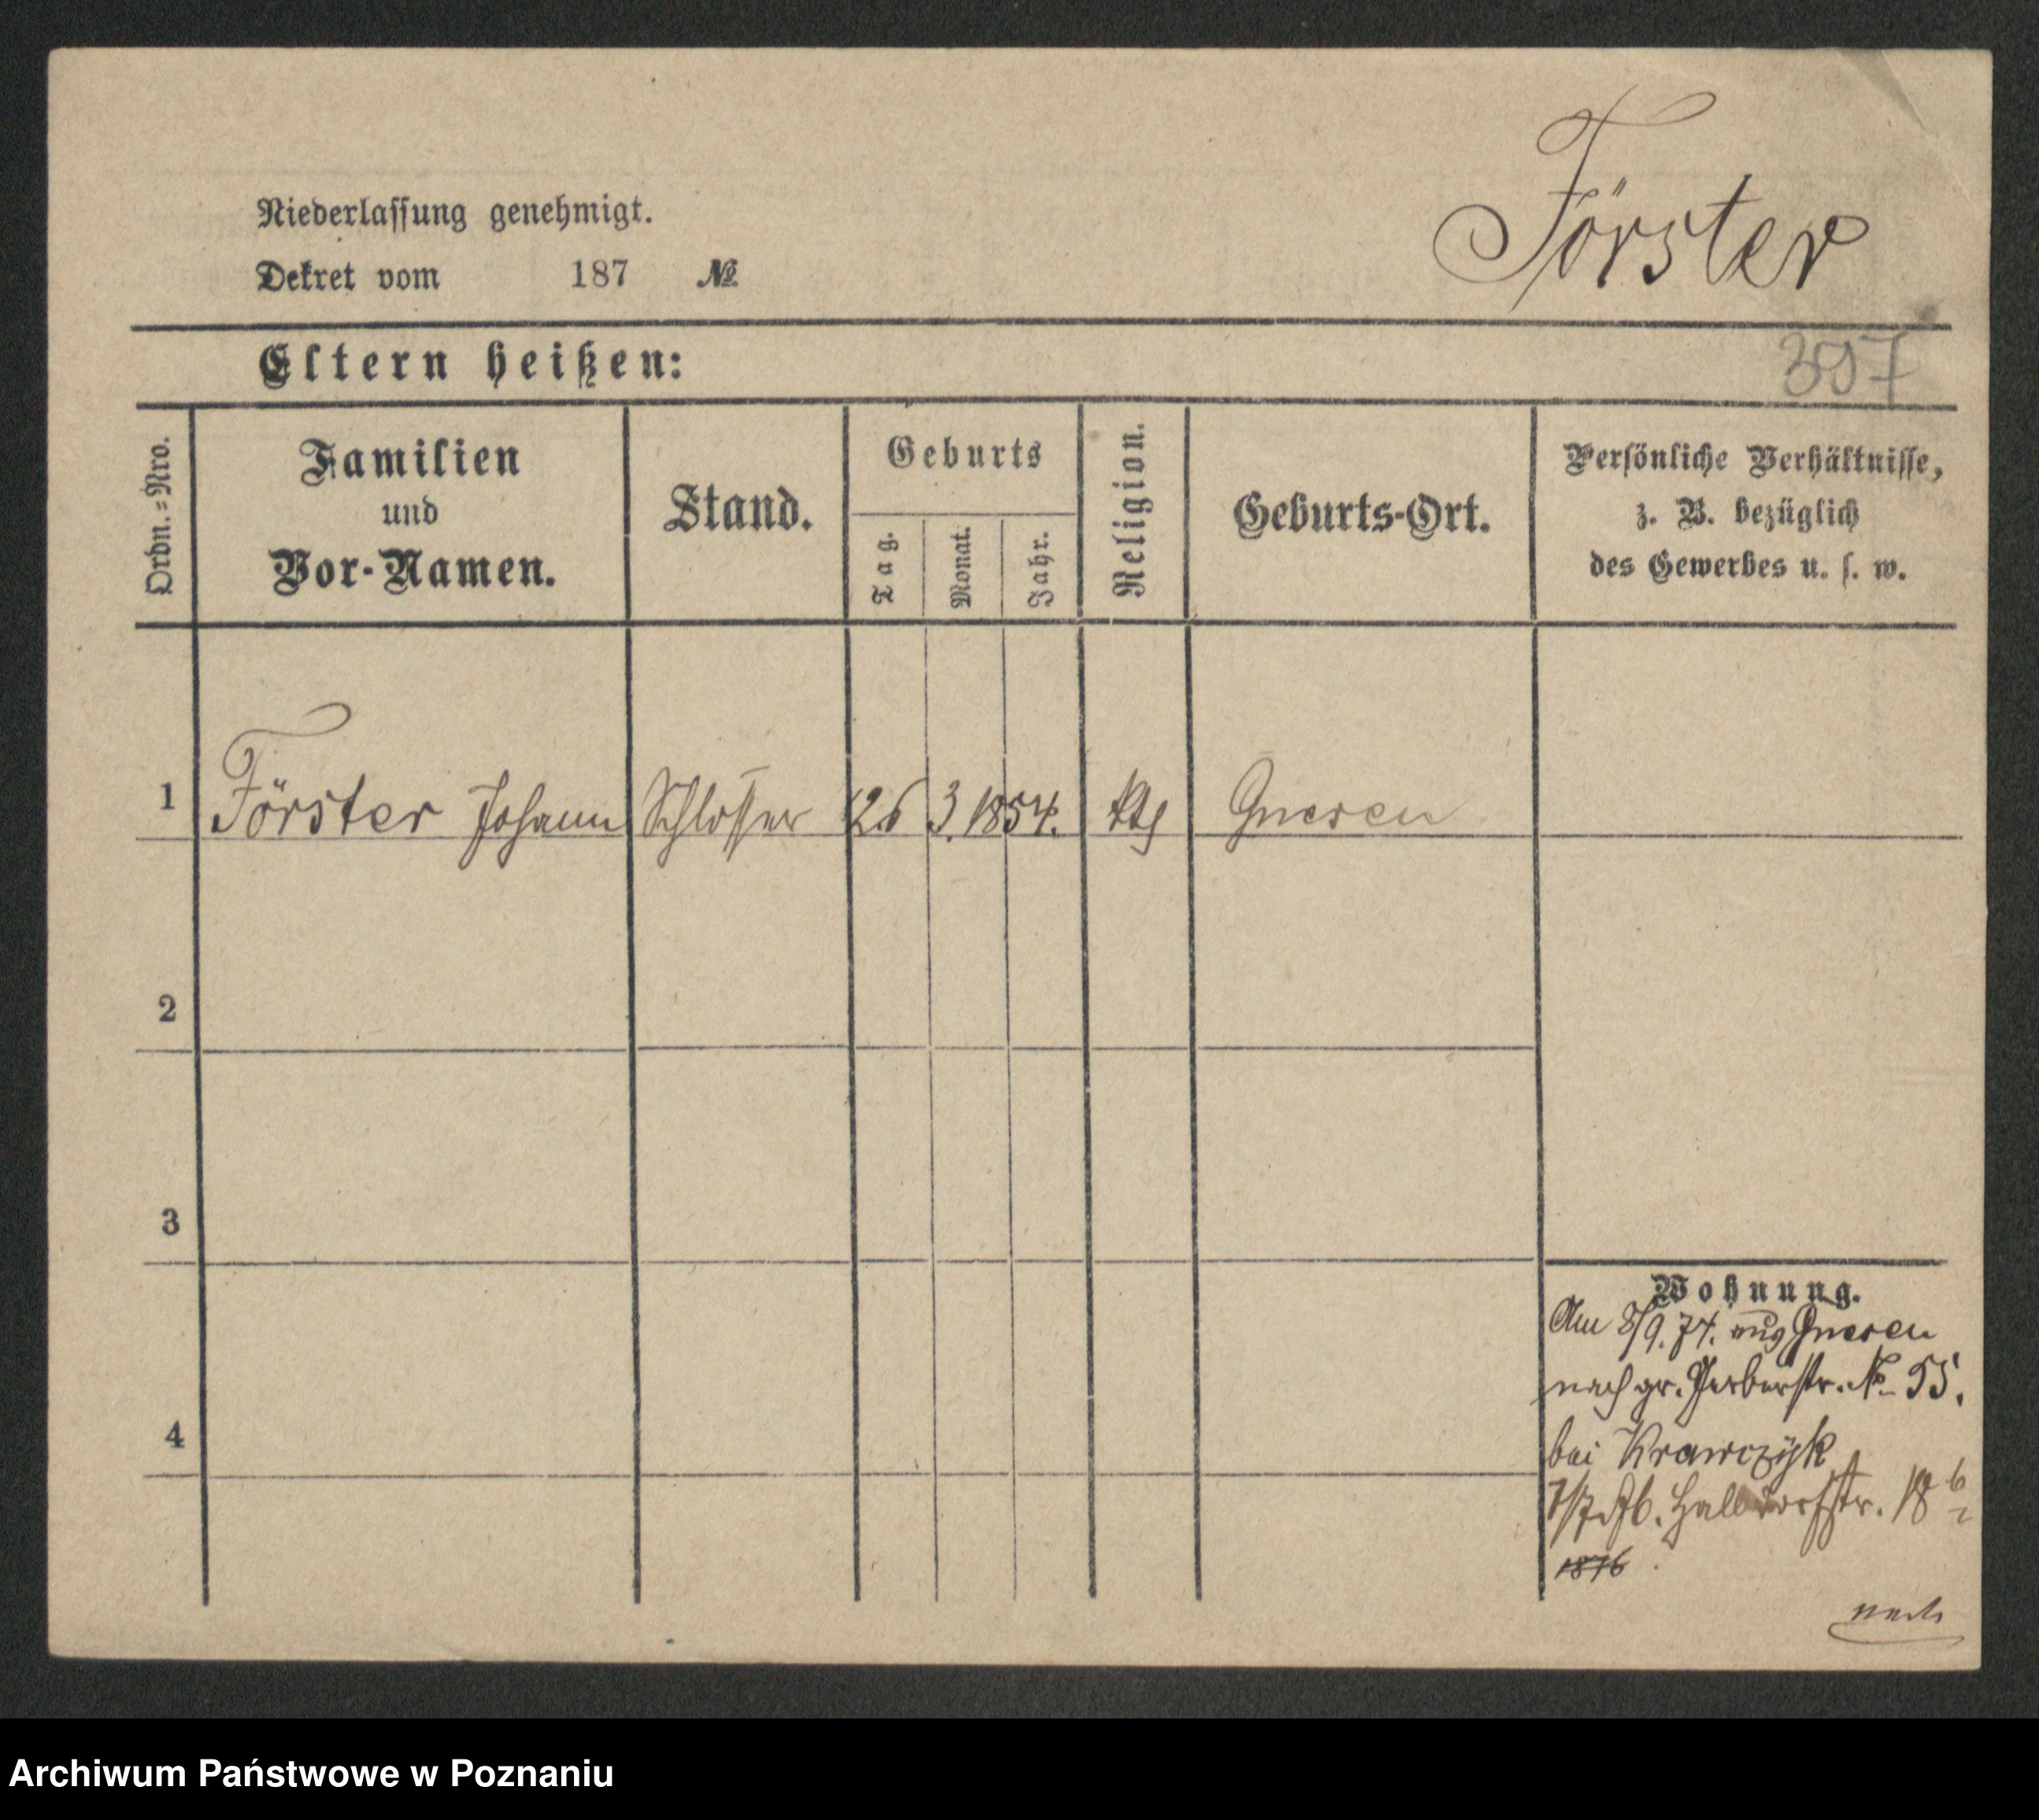 Förster
Niederlassung genehmigt.
Dekret vom 187 №
Eltern heißen:
397
Ordn.=Nro.
Familien
und
Vor-Namen.
Stand.
Geburts
Tag.
Monat.
Jahr.
Religion.
Geburts-Ort.
Persönliche Verhältnisse,
z. B. bezüglich
des Gewerbes u. s. w.
1 Förster Johann Schlosser 26 3. 1854. kth Gnesen
2
3
4
Wohnung.
Am 8/9. 74. aus Gnesen
nach gr. Gerberstr. № 55.
bei Krawczyk
Halbdorfstr. 18
1876
Archiwum Państwowe w Poznaniu